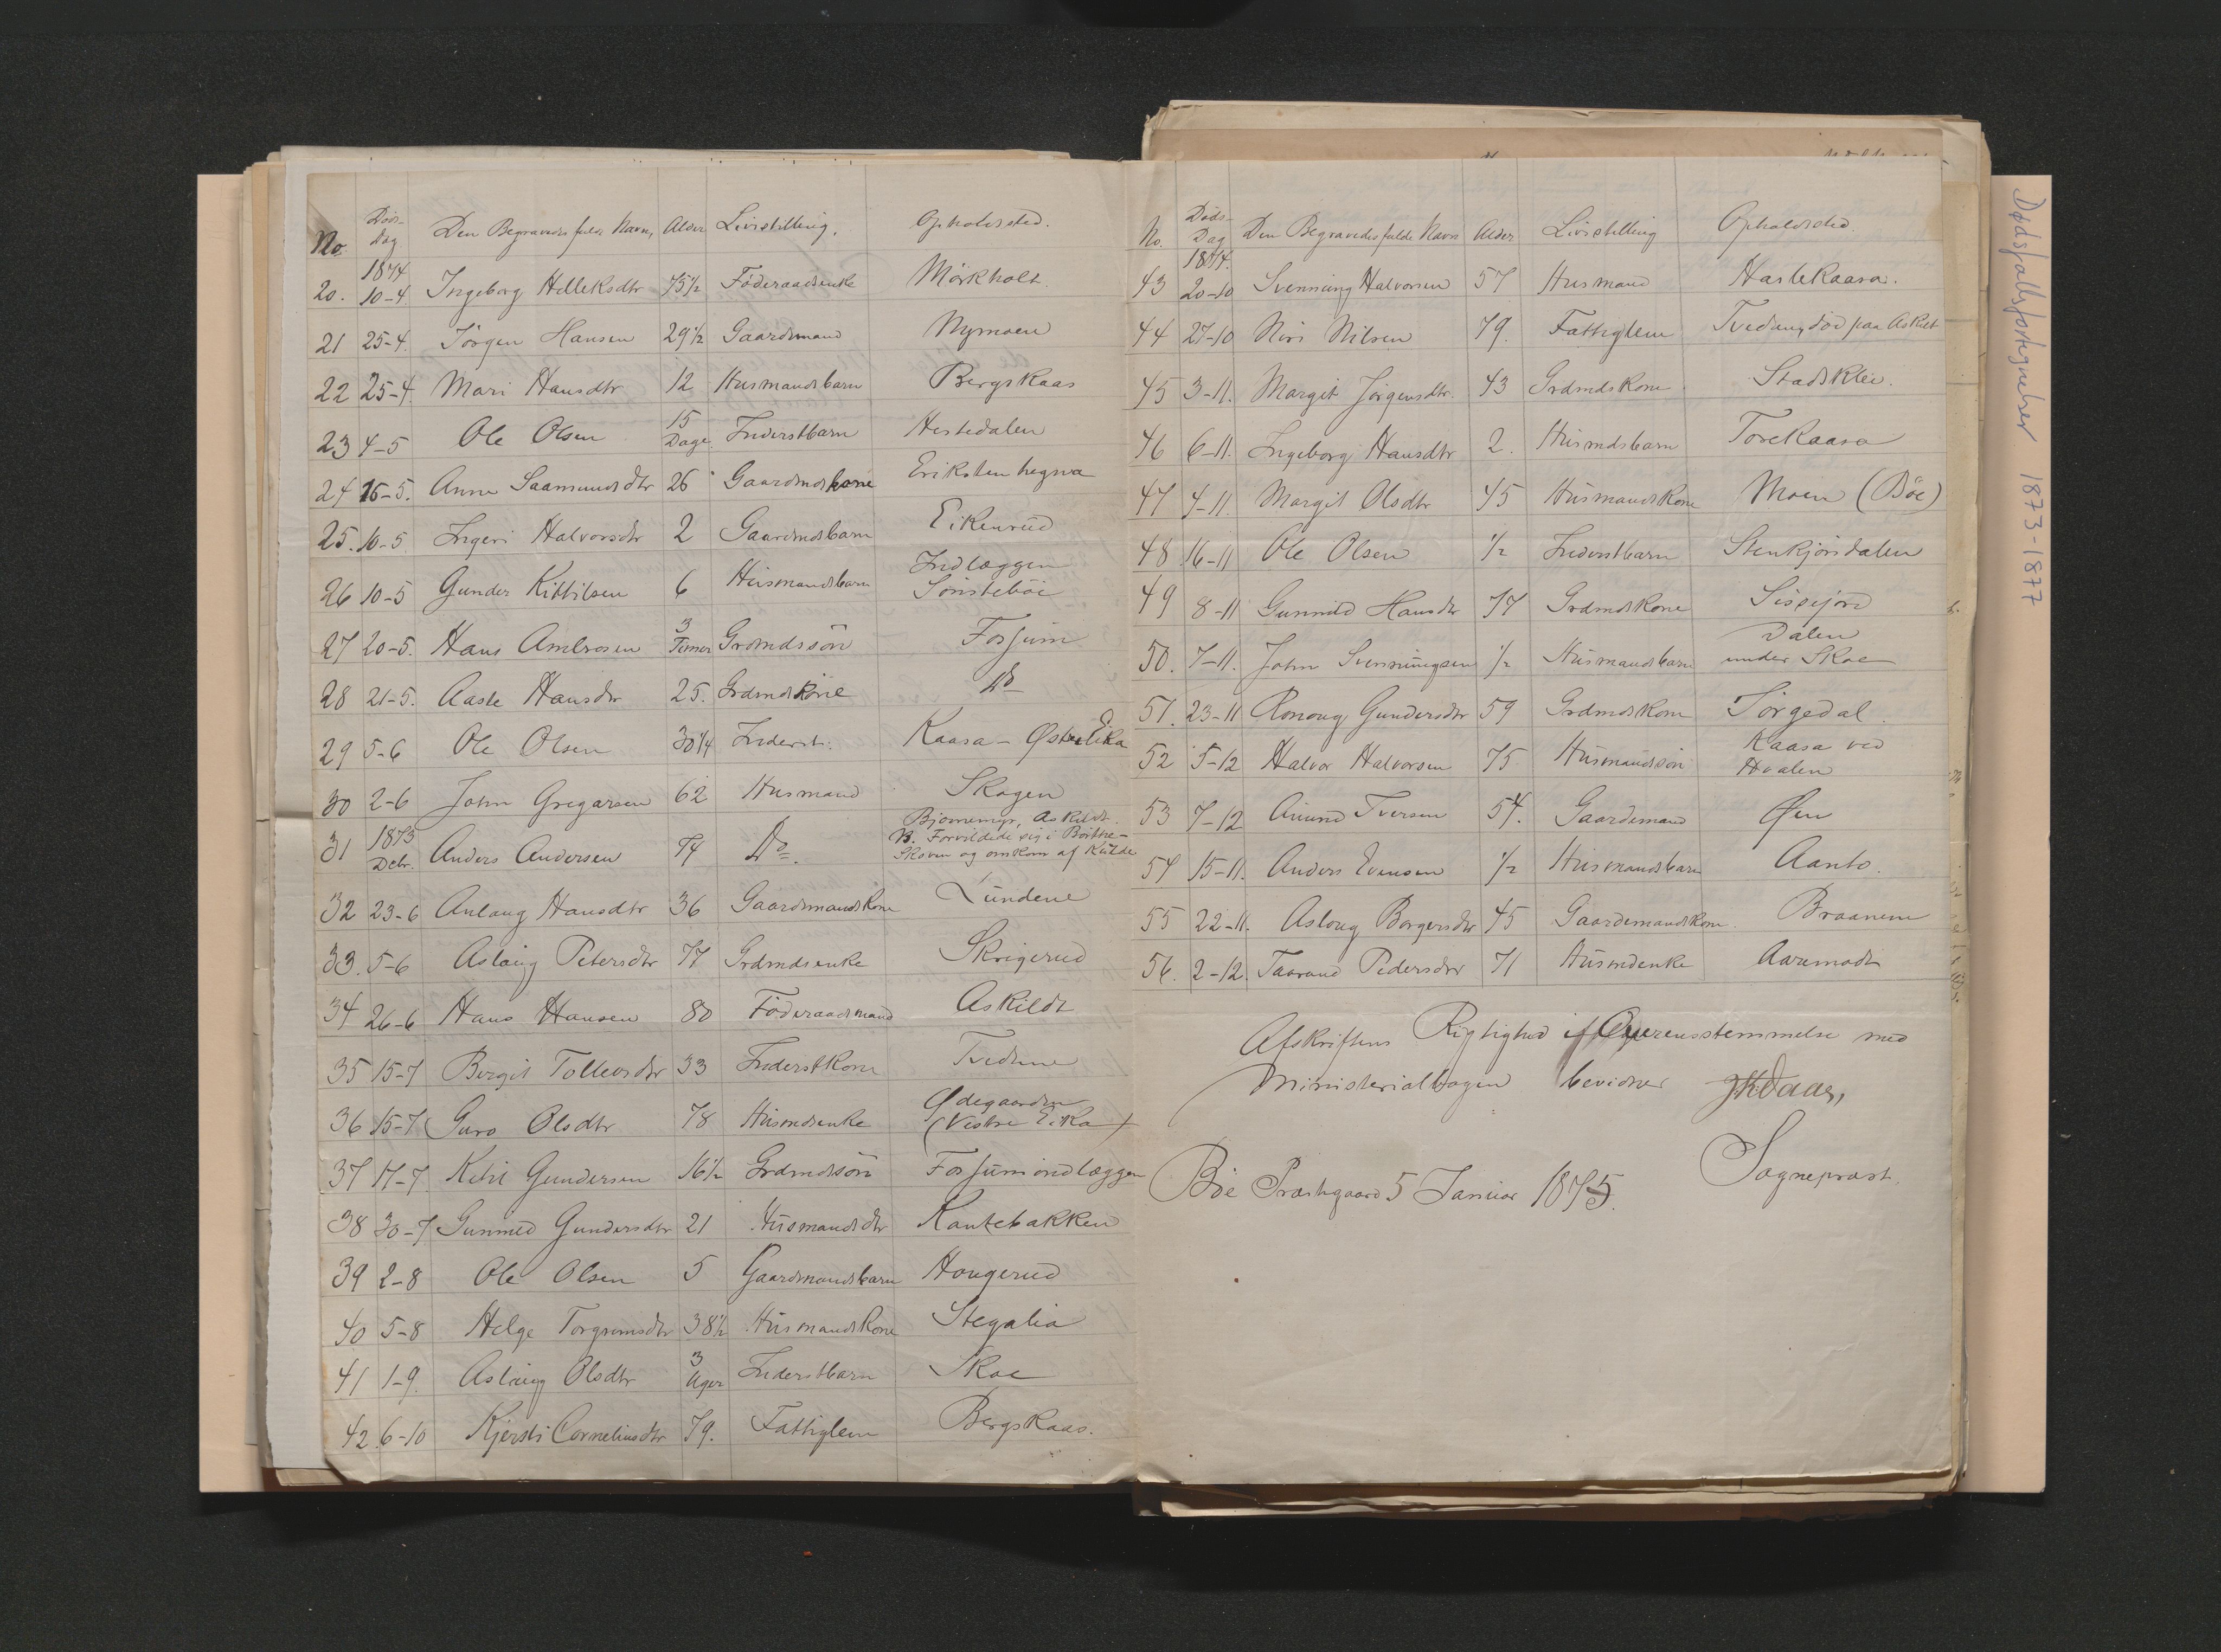 No. Døds-Dag Den Begravedes fulde Navn, Alder Livsstilling. Opholdssted.
1874
20. 10-4. Ingeborg Helleksdtr 75 1/2 Föderaadsenke Mörkholt.
21 25-4. Jörgen Hansen 29 1/2 Gaardmand Nymoen
22 25-4. Mari Hansdtr 12 Husmandsbarn Bergskaas
23 4-5 Ole Olsen 15 Dage Inderstbarn Hestedalen
24 15-5. Anne Saamundsdtr 26 Gaardmdskone Eriksteinhegna
25. 10-5 Ingeri Halvorsdtr 2 Gaardmdsbarn Eikenrud
26 10-5 Gunder Kittilsen 6 Husmandsbarn Indlæggen Sönsteböe
27 20-5. Hans Ambrosen 3 Timer Grdmdssön Forsum
28 21-5. Aaste Hansdtr 25. Grdmdskone Do
29 5-6 Ole Olsen 30 1/4 Inderst. Kaasa - Østre Eika
30 2-6 John Gregarsen 62 Husmand Skogen
31 1873 Debr. Anders Andersen 74 Do. Bjornemyr, Askildt.
NB. Forvildede sig i Böithe-
Skoven og omkom af Kulde
32 23-6 Anlaug Hansdtr 36 Gaardmandskone Lundene
33. 5-6 Aslaug Petersdtr 77 Grdmdsenke Skrigerud
34 26-6 Hans Hansen 80 Föderaadsmand Askildt
35 15-7 Bergit Tollevsdtr 33 Inderstkone Tvedene
36 15-7 Guro Olsdtr 78 Husmdsenke Ødegaarden (Vestre Eika)
37 17-7. Ketil Gundersen 16 1/2 Grdmdssön Forsumindlæggen
38 30-7 Gunnild Gundersdtr 21 Husmandsdtr Kaatebakken
39 2-8 Ole Olsen 5 Gaardmandsbarn Hougerud
40 5-8 Helge Torgrimsdtr 38 1/2 Husmandskone Stegalia
41 1-9. Aslaug Olsdtr 3 Uger Inderstbarn Skoe
42 6-10 Kjersti Corneliusdtr 79. Fattiglem Bergskaas.
No. Døds-Dag Den Begravedes fulde Navn Alder Livsstilling Opholdssted.
1874.
43 20-10 Svenning Halvorsen 57 Husmand Haslekaasa.
44 27-10 Niri Nilsen 79. Fattiglem Tvedan, död paa Askilt
45 3-11. Margit Jörgensdtr. 43 Grdmdskone Stadskleiv.
46 6-11. Ingeborg Hansdtr 2. Husmdsbarn Torekaasa
47 4-11 Margit Olsdtr 45 Husmandskone Moen (Böe)
48 16-11 Ole Olsen 1/2 Inderstbarn Stenkjörsdalen
49 8-11 Gunnild Hansdtr 77 Grdmdskone Sisejord
50. 7-11. John Svenningsen 1/2 Husmandsbarn Dalen under Skoe
51. 23-11 Ronoug Gundersdtr 59 Grdmdskone Törgedal.
52 5-12 Halvor Halvorsen 75 Husmandssön Kaasa ved Hvalen
53 7-12 Amund Iversen 54. Gaardmand Øen
54 15-11. Anders Evensen 1/2 Husmandsbarn Aanto.
55 22-11. Asloug Borgersdtr 45 Gaardemandskone. Braanene
56. 2-12. Taarand Pedersdtr 71 Husmdenke Aaremodt
Afskriftens Rigtighed i Overensstemmelse med
Ministerialbogen bevidner JKDaae,
Sogneprest.
Böe Præstegaard 5 Januar 1875.
Dødsfallsfortegnelser 1873-1877